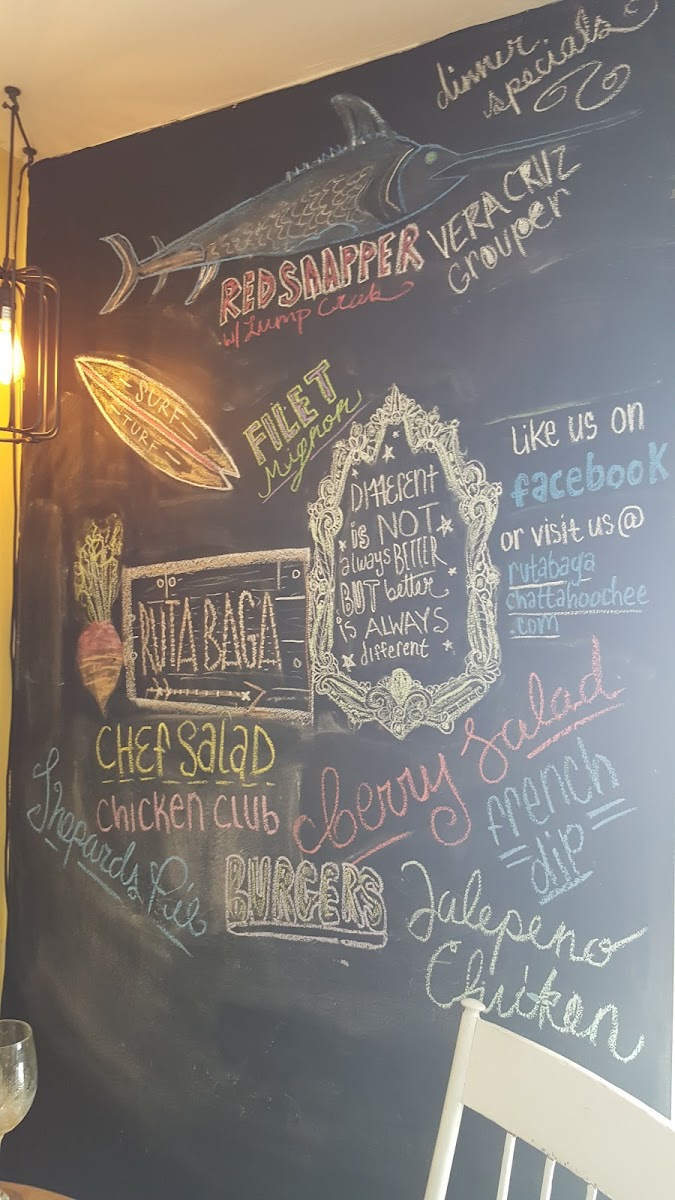 dinner
specials
RED SNAPPER
w/ Lump Crab
VERA CRUZ
Grouper
SURF
TURF
FILET
Mignon
DIFFERENT
is NOT
always BETTER
BUT better
is ALWAYS
different
Like us on
facebook
or visit us @
rutabaga
chattahoochee
.com
RUTABAGA
CHEF Salad
Chicken Club
Cherry Salad
french
dip
Shepards Pie
BURGERS
Jalepeno
Chicken